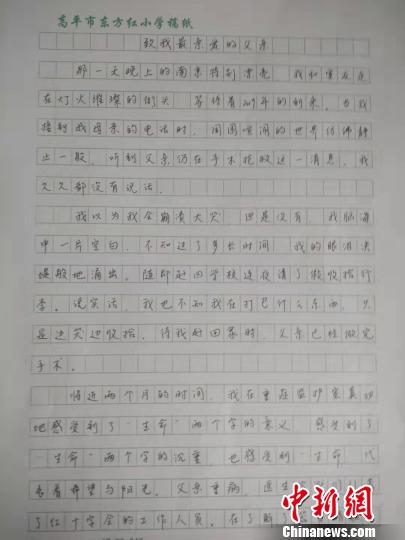 高平市东方红小学稿纸
致我最亲爱的父亲
那一天晚上的南京特别漂亮 我和室友走
在灯火璀璨的街头 等待着2019年的到来。当我
接到我母亲的电话时，周围喧闹的世界仿佛静
止一般。听到父亲仍在手术抢救这一消息，我
久久都没有说话。
我以为我会崩溃大哭 但是没有，我脑海
中一片空白，不知过了多长时间 我的眼泪决
堤般地涌出。随即赶回学校连夜请了假收拾行
李。说实话，我也不知我在打包什么东西，只
是边哭边收拾。待我赶回家时，父亲已经做完
手术。
将近两个月的时间，我在重症监护室真切
地感受到了“生命”两个字的意义 感受到了
“生命”两个字的沉重，也感受到“生命”代
表着希望与阳光。父亲重病，医生
了红十字会的工作人员。在了解了
中新网